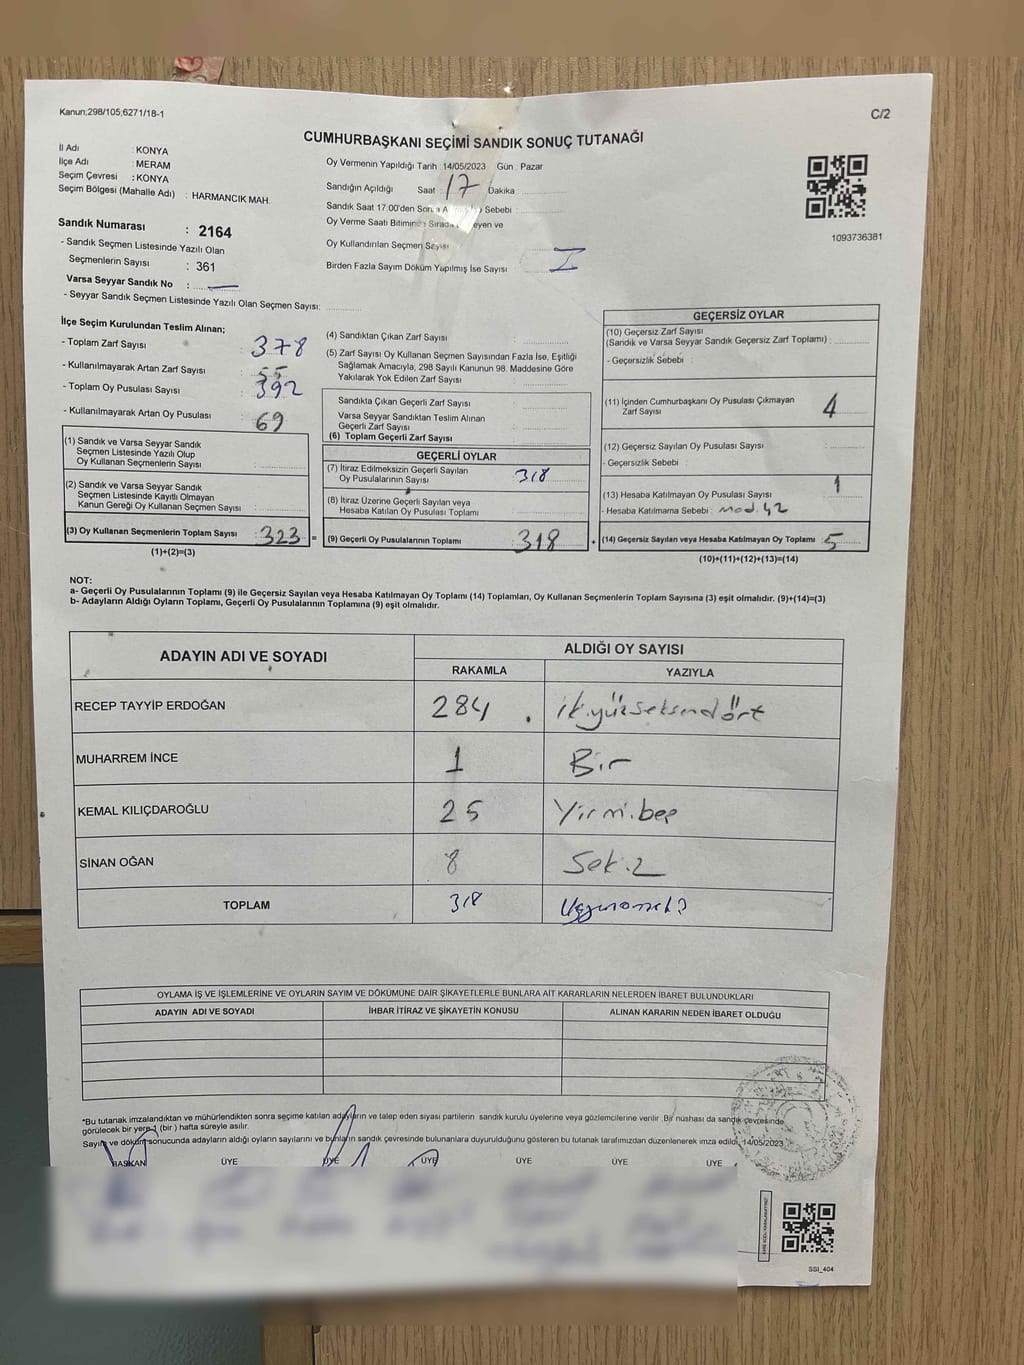 Kanun,298/105,6271/18-1
C/2
CUMHURBAŞKANI SEÇİMİ SANDIK SONUÇ TUTANAĞI
İl Adı : KONYA
İlçe Adı : MERAM
Seçim Çevresi : KONYA
Seçim Bölgesi (Mahalle Adı) : HARMANCIK MAH.
Sandık Numarası : 2164
- Sandık Seçmen Listesinde Yazılı Olan
Seçmenlerin Sayısı : 361
Varsa Seyyar Sandık No :
- Seyyar Sandık Seçmen Listesinde Yazılı Olan Seçmen Sayısı:
Oy Vermenin Yapıldığı Tarih :14/05/2023 Gün : Pazar
Sandığın Açıldığı Saat : 17 Dakika
Sandık Saat 17:00'den Sebebi :
Oy Verme Saati ve
Oy Kullandırılan Seçmen Sayısı
Birden Fazla Sayım Döküm Yapılmış İse Sayısı
1093736381
İlçe Seçim Kurulundan Teslim Alınan;
- Toplam Zarf Sayısı 378
- Kullanılmayarak Artan Zarf Sayısı 55
- Toplam Oy Pusulası Sayısı 392
- Kullanılmayarak Artan Oy Pusulası 69
(1) Sandık ve Varsa Seyyar Sandık
Seçmen Listesinde Yazılı Olup
Oy Kullanan Seçmenlerin Sayısı :
(2) Sandık ve Varsa Seyyar Sandık
Seçmen Listesinde Kayıtlı Olmayan
Kanun Gereği Oy Kullanan Seçmen Sayısı :
(3) Oy Kullanan Seçmenlerin Toplam Sayısı : 323 =
(1)+(2)=(3)
(4) Sandıktan Çıkan Zarf Sayısı :
(5) Zarf Sayısı Oy Kullanan Seçmen Sayısından Fazla İse, Eşitliği
Sağlamak Amacıyla, 298 Sayılı Kanunun 98. Maddesine Göre
Yakılarak Yok Edilen Zarf Sayısı :
Sandıkta Çıkan Geçerli Zarf Sayısı :
Varsa Seyyar Sandıktan Teslim Alınan
Geçerli Zarf Sayısı :
(6) Toplam Geçerli Zarf Sayısı
GEÇERLİ OYLAR
(7) İtiraz Edilmeksizin Geçerli Sayılan
Oy Pusulalarının Sayısı 318
(8) İtiraz Üzerine Geçerli Sayılan veya
Hesaba Katılan Oy Pusulası Toplamı :
(9) Geçerli Oy Pusulalarının Toplamı : 318 +
GEÇERSİZ OYLAR
(10) Geçersiz Zarf Sayısı
(Sandık ve Varsa Seyyar Sandık Geçersiz Zarf Toplamı) :
- Geçersizlik Sebebi :
(11) İçinden Cumhurbaşkanı Oy Pusulası Çıkmayan
Zarf Sayısı 4
(12) Geçersiz Sayılan Oy Pusulası Sayısı :
- Geçersizlik Sebebi :
(13) Hesaba Katılmayan Oy Pusulası Sayısı : 1
- Hesaba Katılmama Sebebi : mad.42
(14) Geçersiz Sayılan veya Hesaba Katılmayan Oy Toplamı : 5
(10)+(11)+(12)+(13)=(14)
NOT:
a- Geçerli Oy Pusulalarının Toplamı (9) ile Geçersiz Sayılan veya Hesaba Katılmayan Oy Toplamı (14) Toplamları, Oy Kullanan Seçmenlerin Toplam Sayısına (3) eşit olmalıdır. (9)+(14)=(3)
b- Adayların Aldığı Oyların Toplamı, Geçerli Oy Pusulalarının Toplamına (9) eşit olmalıdır.
ADAYIN ADI VE SOYADI
ALDIĞI OY SAYISI
RAKAMLA YAZIYLA
RECEP TAYYİP ERDOĞAN 284 ikiyükseksendört
MUHARREM İNCE 1 Bir
KEMAL KILIÇDAROĞLU 25 Yirmibeş
SİNAN OĞAN 8 Sekiz
TOPLAM 318
OYLAMA İŞ VE İŞLEMLERİNE VE OYLARIN SAYIM VE DÖKÜMÜNE DAİR ŞİKAYETLERLE BUNLARA AİT KARARLARIN NELERDEN İBARET BULUNDUKLARI
ADAYIN ADI VE SOYADI İHBAR İTİRAZ VE ŞİKAYETİN KONUSU ALINAN KARARIN NEDEN İBARET OLDUĞU
*Bu tutanak imzalandıktan ve mühürlendikten sonra seçime katılan adayların ve talep eden siyasi partilerin sandık kurulu üyelerine veya gözlemcilerine verilir .Bir nüshası da sandık çevresinde
görülecek bir yere 1 (bir ) hafta süreyle asılır.
Sayım ve döküm sonucunda adayların aldığı oyların sayılarını ve bunların sandık çevresinde bulunanlara duyurulduğunu gösteren bu tutanak tarafımızdan düzenlenerek imza edildi. 14/05/2023
BAŞKAN ÜYE ÜYE ÜYE ÜYE ÜYE ÜYE
SSI_404